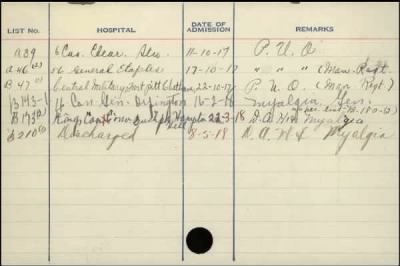 LIST No. HOSPITAL DATE OF ADMISSION REMARKS
A39 6 Cas. Clear. Stn. 11-10-17 P. U. O
A46 (2) General Etaples 17-10-17 " " " (Man. Regt.
B47 Central Military Hosp. Chatham 22-10-17 P. U. O (Man Rgt.)
B143-1 16 Can. Gen. Orpington 16-2-18 Myalgia
B173 Kings Can. Conv. Bushy Pk. Hampton Hill 22-3-18 Myalgia
B210 Discharged 8-5-18 Myalgia